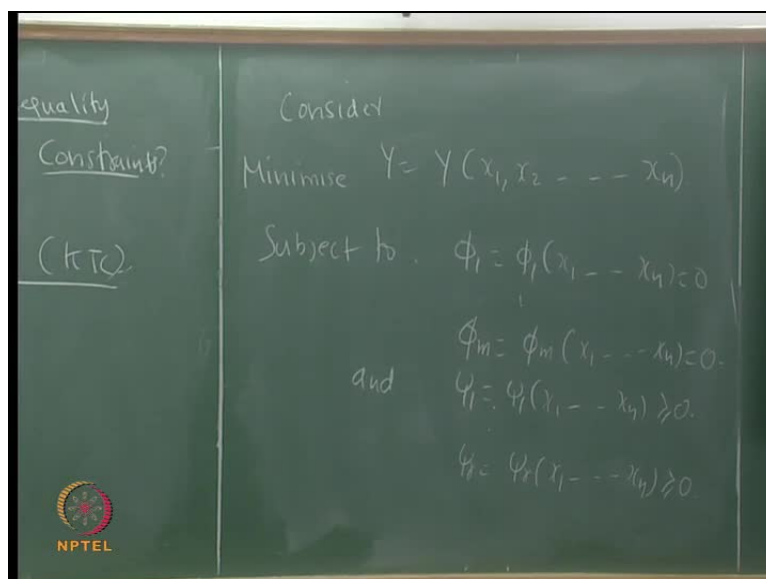 equality
Constraints?
(KTC)
Consider
Minimise Y = Y(x₁, x₂ - - - xₙ)
Subject to. ϕ₁ = ϕ₁(x₁ - - xₙ) = 0
ϕₘ = ϕₘ(x₁ - - - xₙ) = 0.
and ψ₁ = ψ₁(x₁ - - xₙ) ⩾ 0.
ψᵣ = ψᵣ(x₁ - - - xₙ) ⩾ 0.
NPTEL